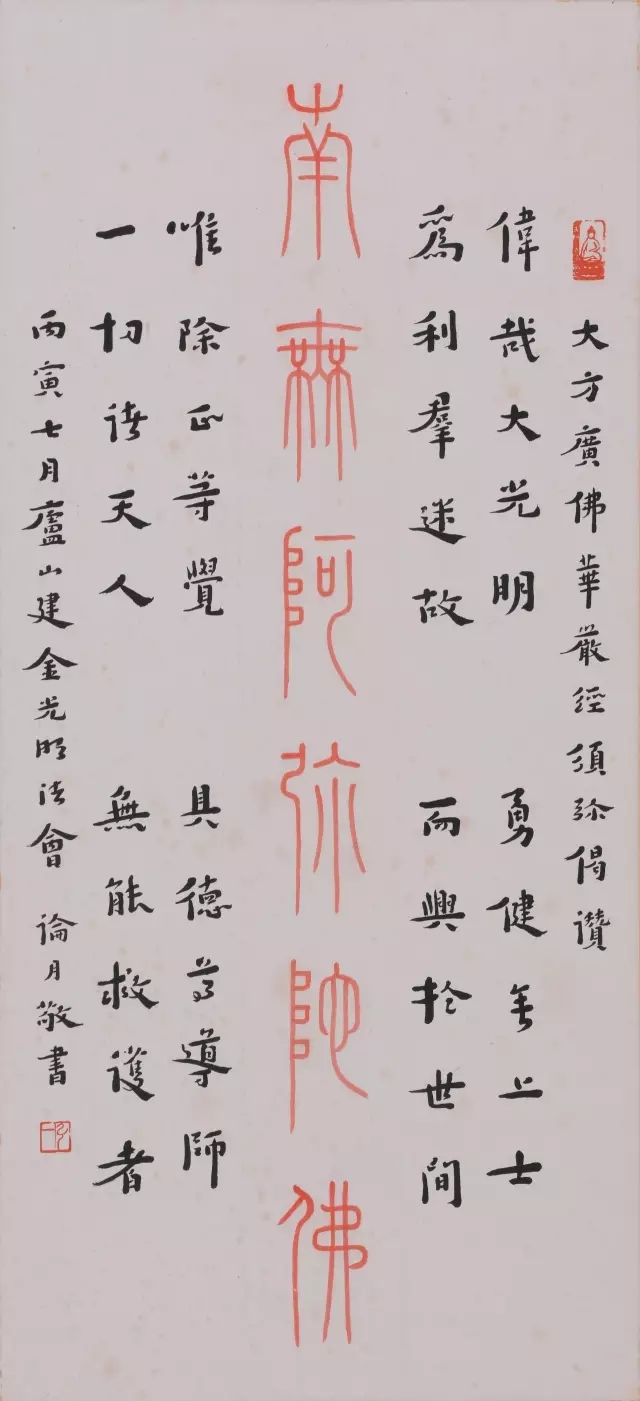 大方廣佛華嚴經須弥偈讚
偉哉大光明 勇健無上士
爲利羣迷故 而興於世間
南無阿弥陀佛
唯除正等覺 具德尊導師
一切諸天人 無能救護者
丙寅七月廬山建金光明法會 論月敬書
弘一